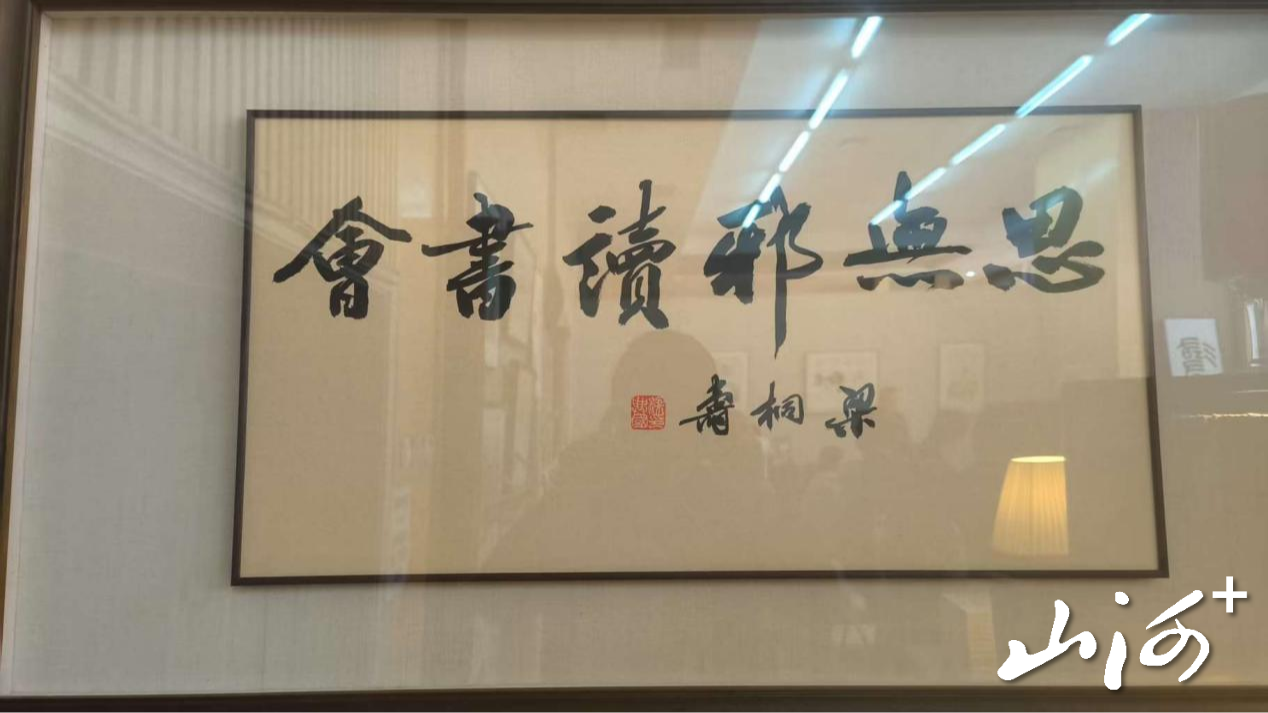 思無邪讀書會
梁桐壽
山河+